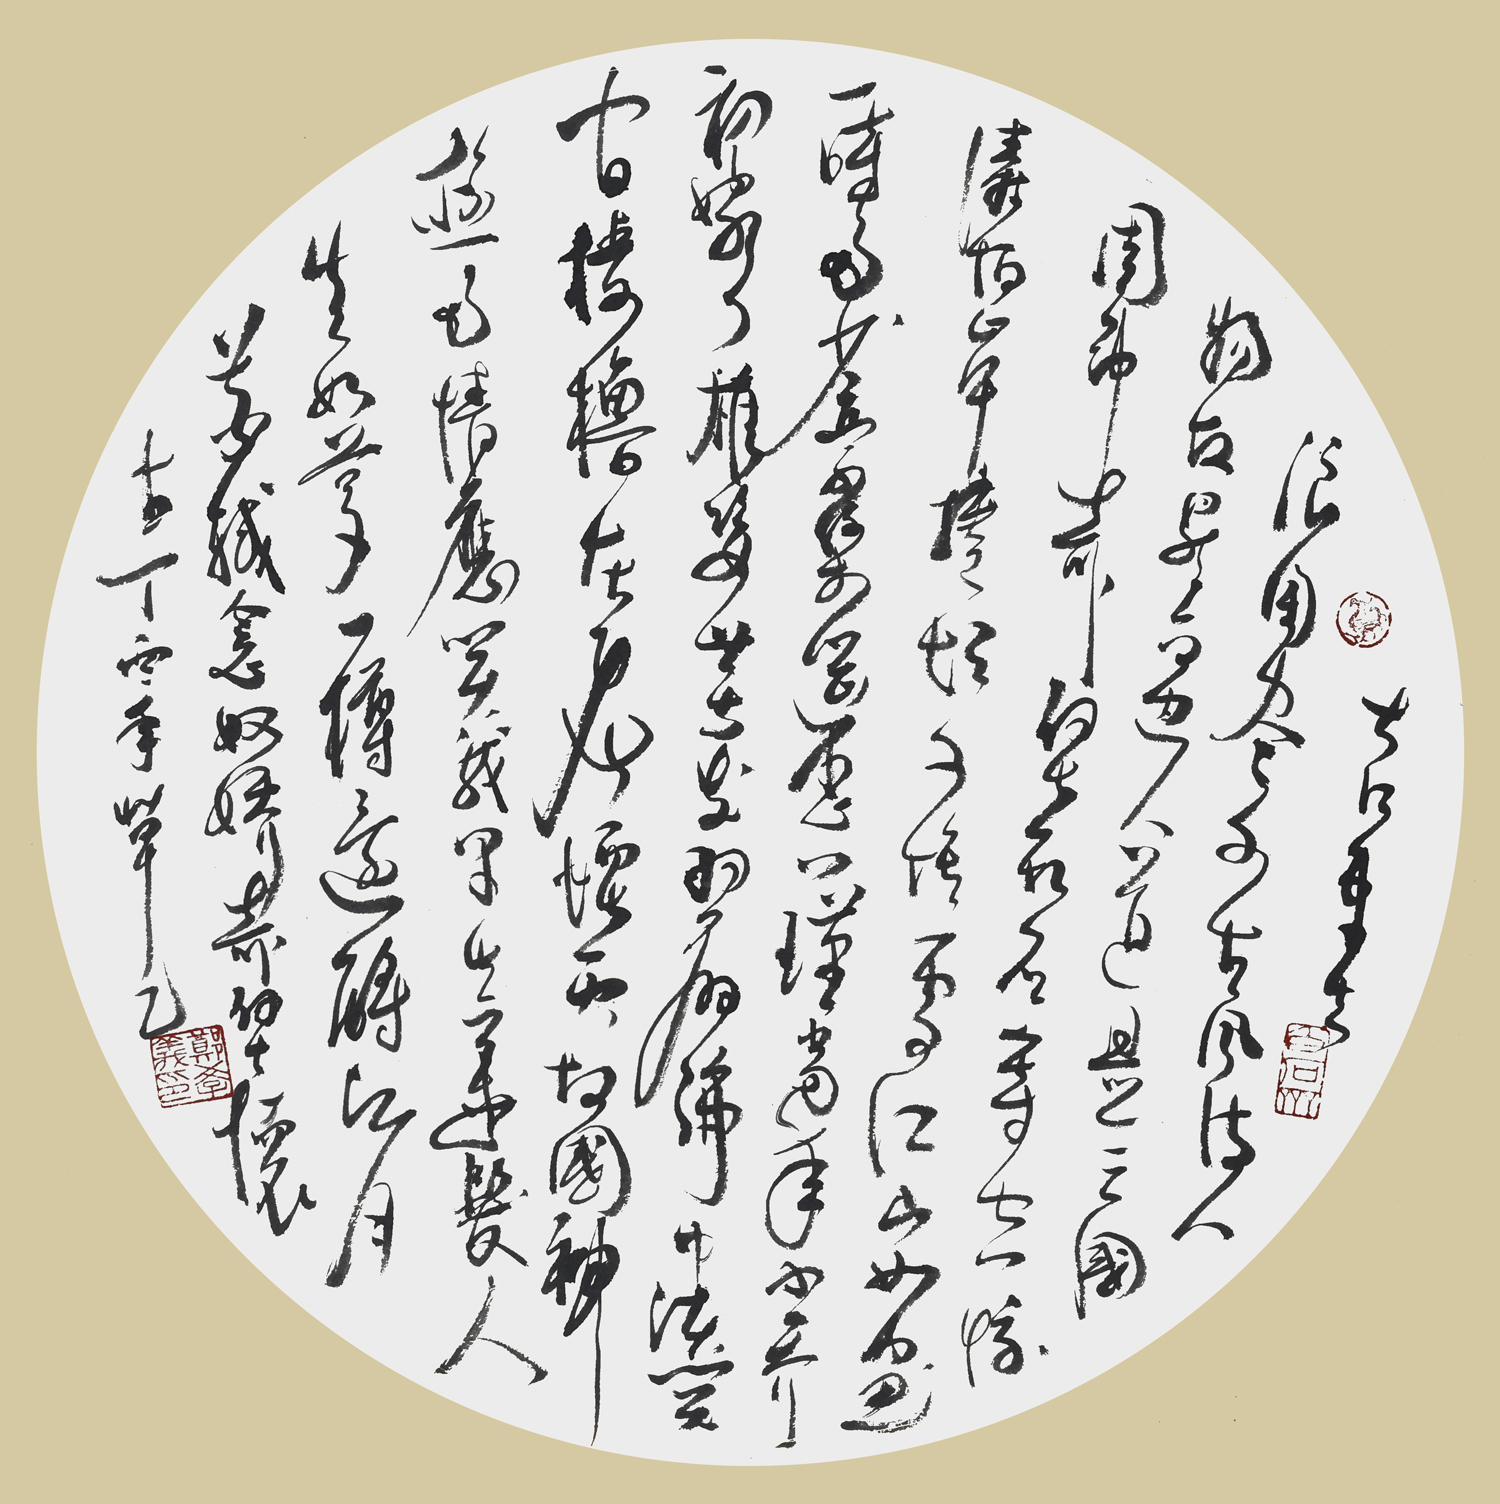 大江東去
浪淘盡千古風流人
物故壘西邊人道是三國
周郎赤壁亂石穿空驚
濤拍岸捲起千堆雪江山如畫
一時多少豪傑遙想公瑾當年小喬
初嫁了雄姿英發羽扇綸巾談笑
間檣櫓灰飛煙滅故國神
遊多情應笑我早生華髮人
生如夢一樽還酹江月
蘇軾念奴嬌赤壁懷
古丁亥年